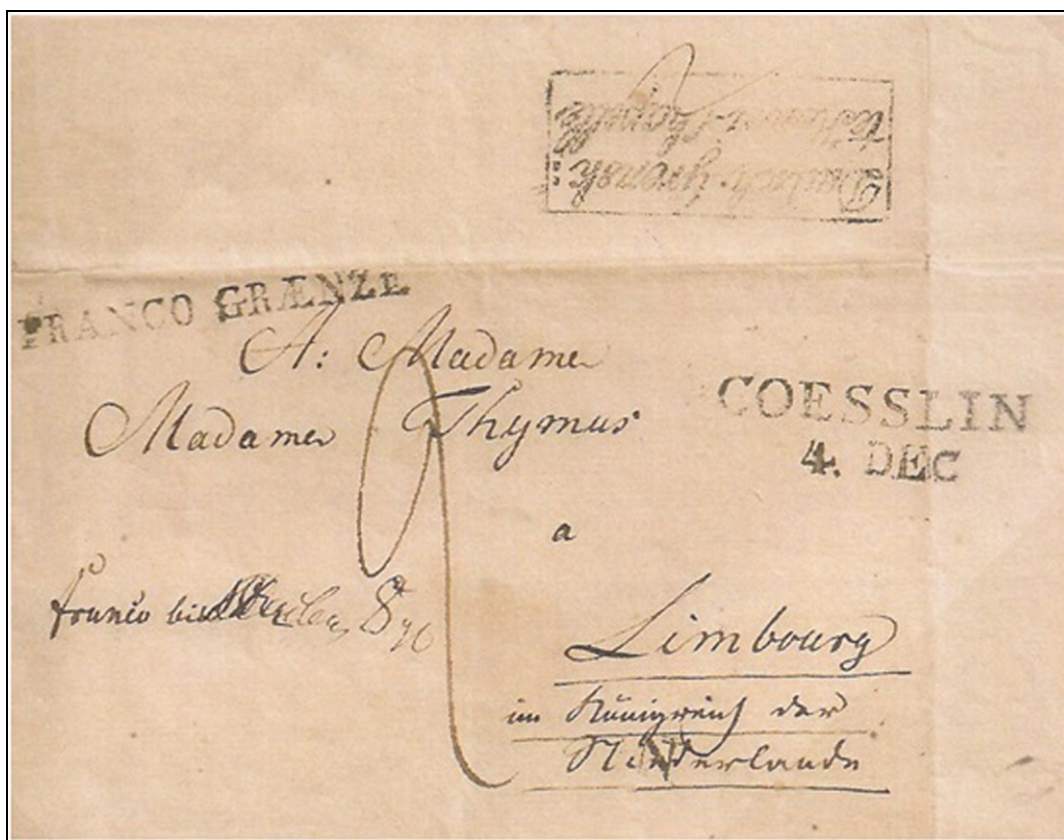 FRANCO GRÆNZE
A: Madame
Madame Thymus
COESSLIN
4. DEC
a
franco bis
Limbourg
im Königreich der
Niederlande